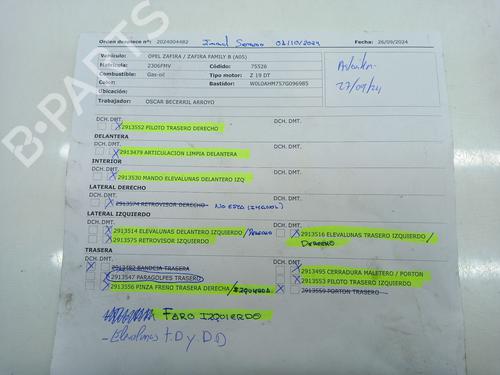 Orden despiece nº: 2024004482 01/10/2024 Fecha: 26/09/2024
Vehículo: OPEL ZAFIRA / ZAFIRA FAMILY B (A05)
Matrícula: 2306FMV Código: 75526
Combustible: Gas-oil Tipo motor: Z 19 DT
Color: Bastidor: W0L0AHM757G096985
Ubicación:
Trabajador: OSCAR BECERRIL ARROYO
27/09/24
DCH. DMT. DCH. DMT.
2913552 PILOTO TRASERO DERECHO
DELANTERA
DCH. DMT. DCH. DMT.
2913479 ARTICULACION LIMPIA DELANTERA
INTERIOR
DCH. DMT. DCH. DMT.
2913530 MANDO ELEVALUNAS DELANTERO IZQ
LATERAL DERECHO
DCH. DMT. DCH. DMT.
2913574 RETROVISOR DERECHO NO ESTA
LATERAL IZQUIERDO
DCH. DMT. DCH. DMT.
2913514 ELEVALUNAS DELANTERO IZQUIERDO / DERECHO 2913516 ELEVALUNAS TRASERO IZQUIERDO /
2913575 RETROVISOR IZQUIERDO DERECHO
TRASERA
DCH. DMT. DCH. DMT.
2913482 BANDEJA TRASERA 2913495 CERRADURA MALETERO / PORTON
2913547 PARAGOLPES TRASERO 2913553 PILOTO TRASERO IZQUIERDO
2913556 PINZA FRENO TRASERA DERECHA / IZQUIERDA 2913559 PORTON TRASERO
FARO IZQUIERDO
- Elevalunas t.D y D.D
B-PARTS